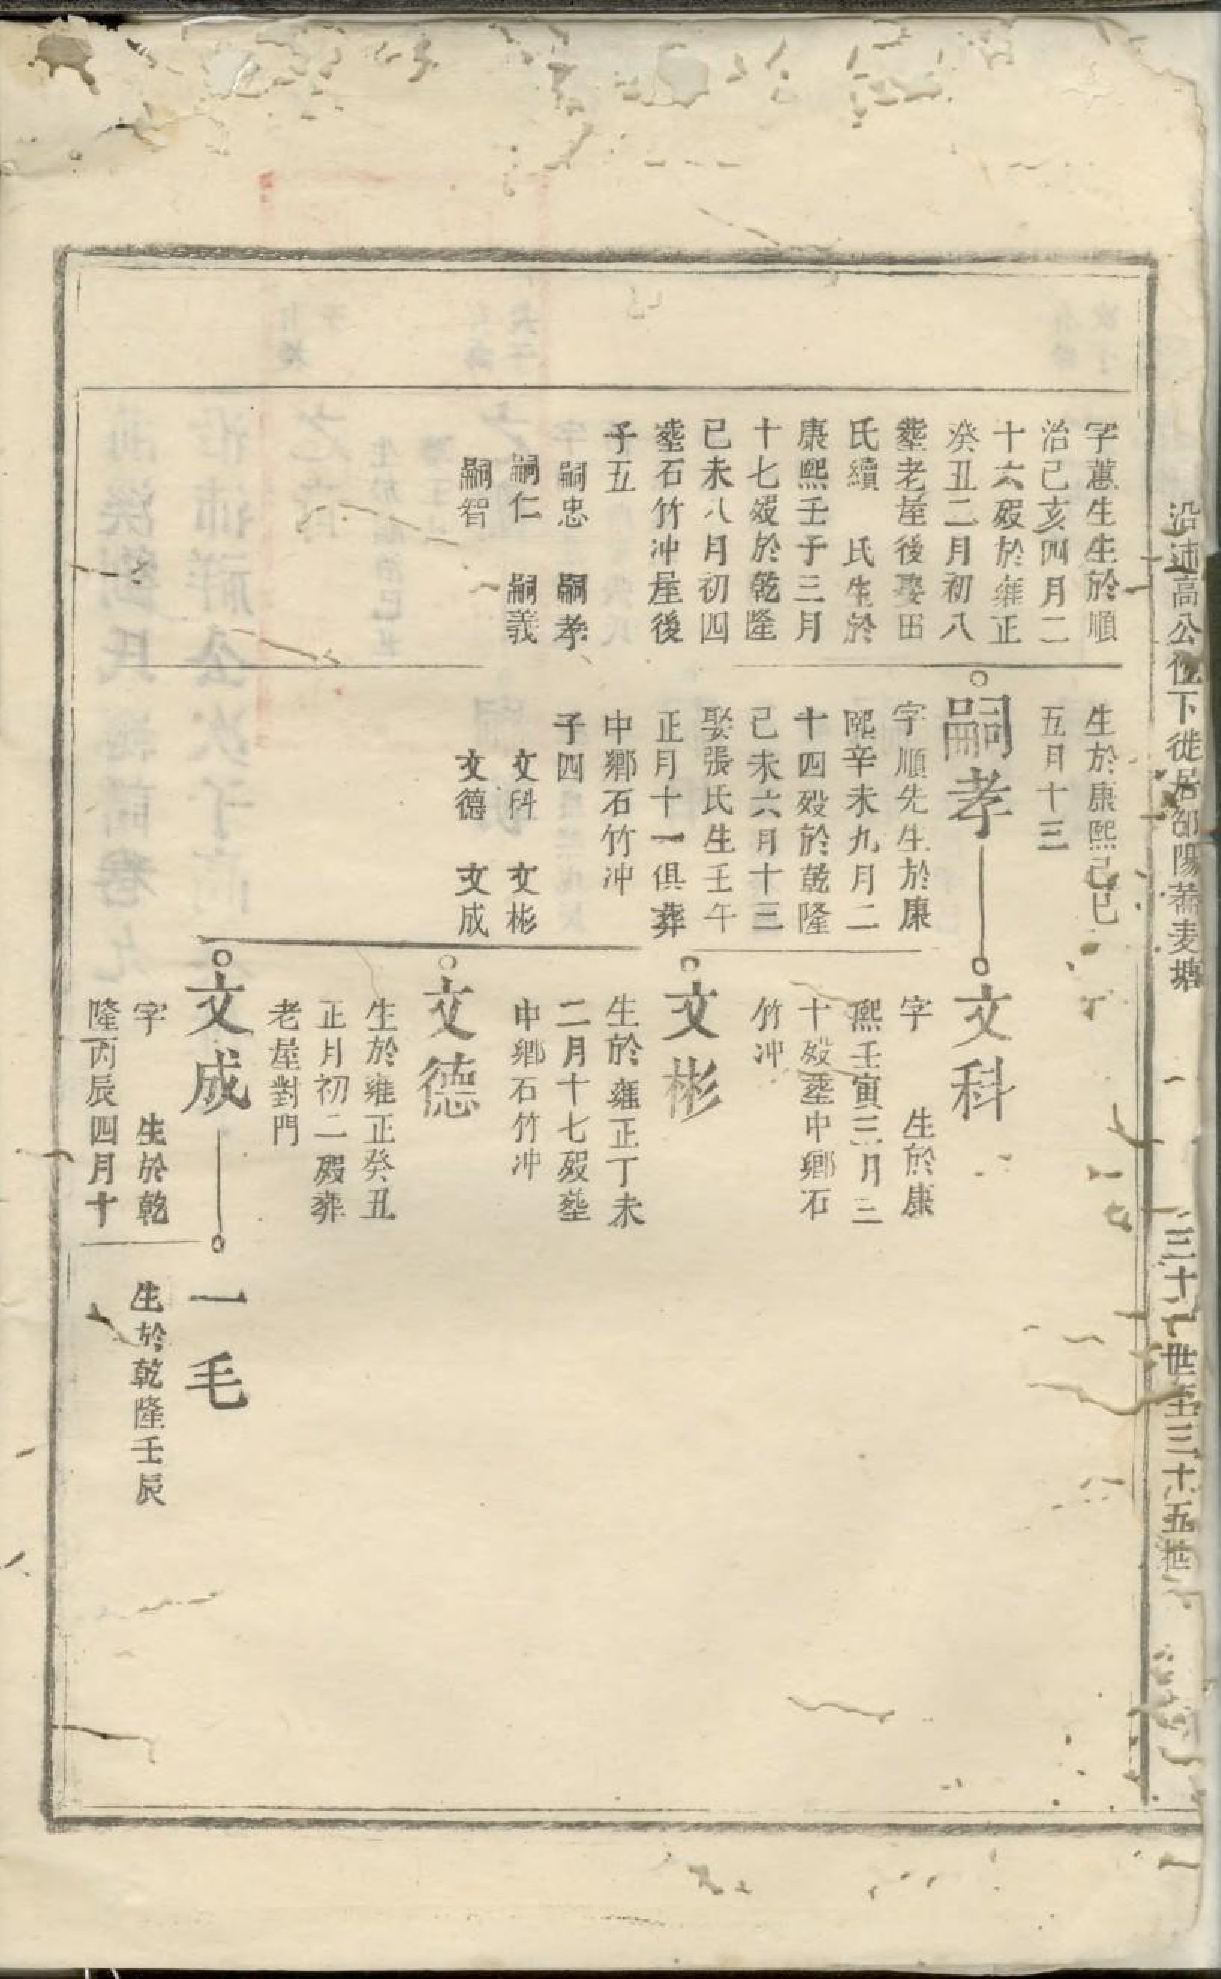 沿沛高公位下徙居邵陽蕎麦塘
三十一世至三十五世
字蕙生生於順
治己亥四月二
十六歿於雍正
癸丑二月初八
塟老屋後娶田
氏續　氏生於
康熙壬子三月
十七歿於乾隆
已未八月初四
塟石竹冲屋後
子五
嗣忠　嗣孝
嗣仁　嗣義
嗣智
生於康熙己巳
五月十三
嗣孝
字順先生於康
熙辛未九月二
十四歿於乾隆
己未六月十三
娶張氏生壬午
正月十一俱葬
中鄉石竹冲
子四
文科　文彬
文德　文成
文科
字　　生於康
熙壬寅三月三
十歿塟中鄉石
竹冲
文彬
生於雍正丁未
二月十七歿塟
中鄉石竹冲
文德
生於雍正癸丑
正月初二歿葬
老屋對門
文成
字　　生於乾
隆丙辰四月十
一毛
生於乾隆壬辰